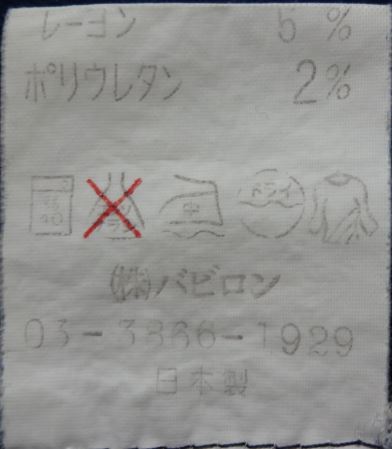 レーヨン 5 %
ポリウレタン 2%
40
中 ドライ
㈱バビロン
03-3866-1929
日本製